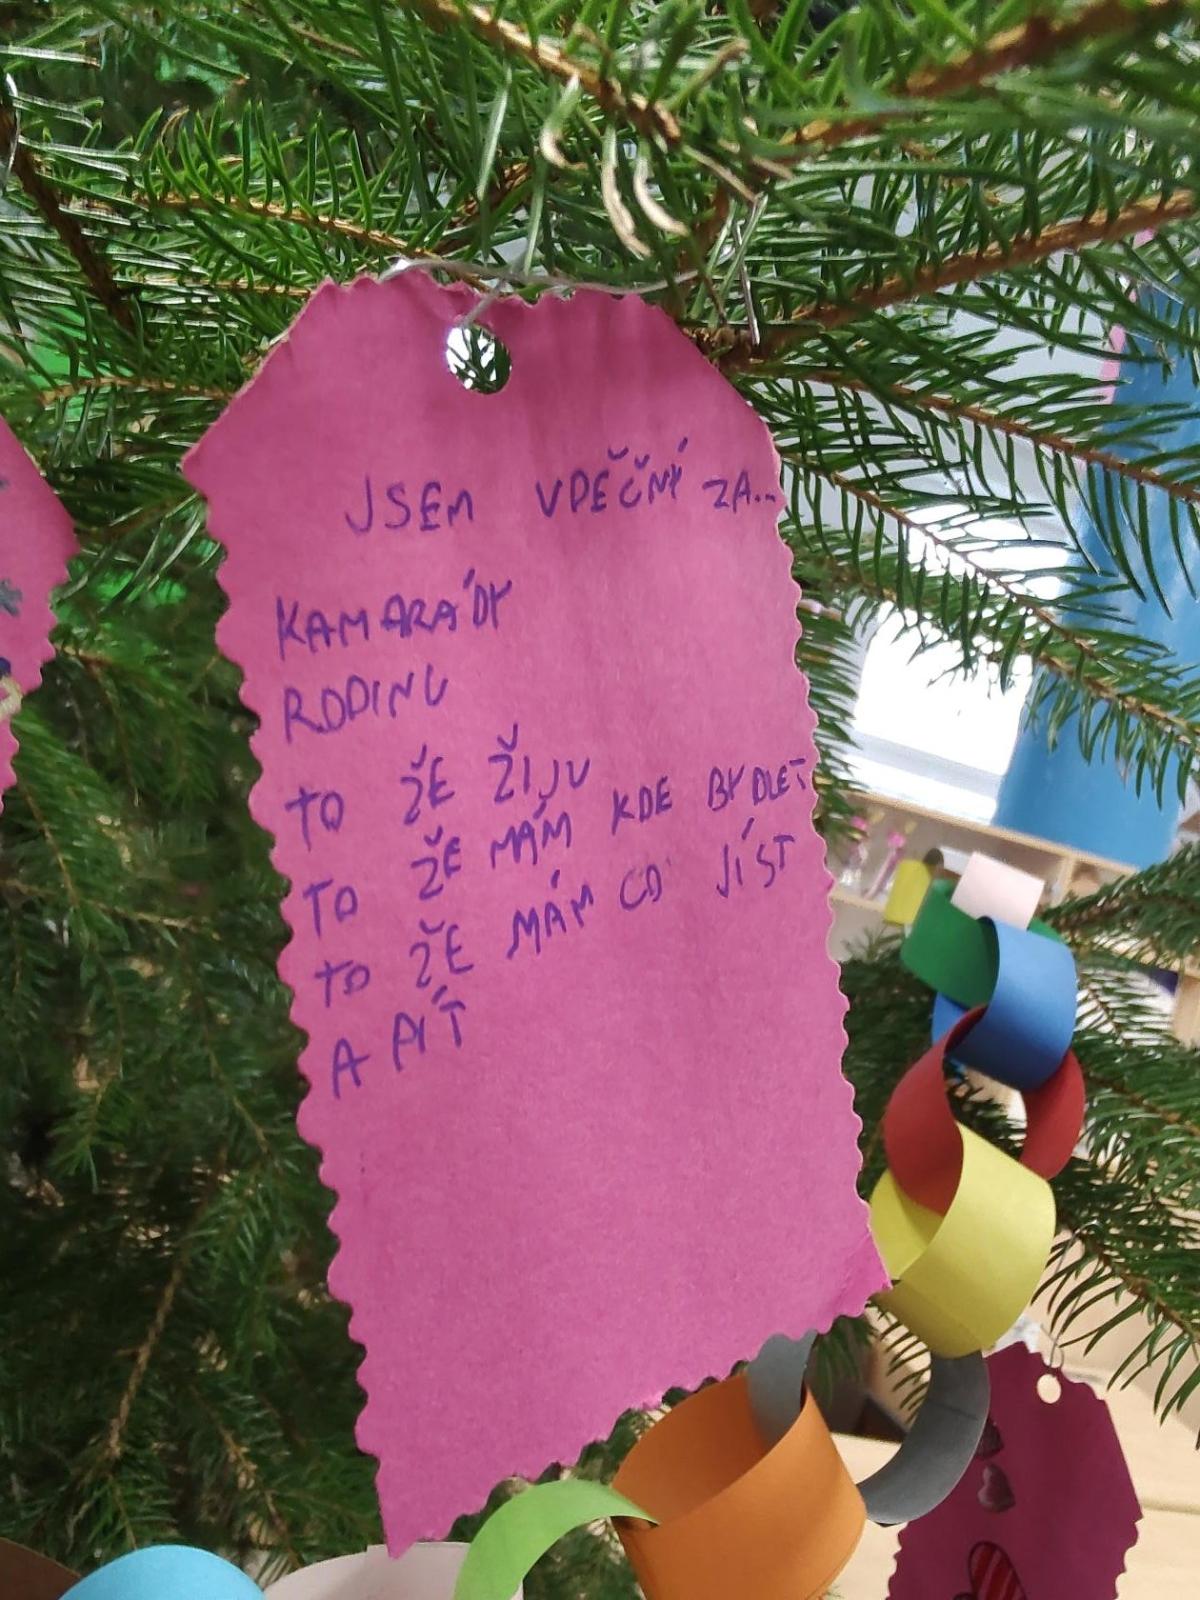 JSEM VDĚČNÝ ZA..
KAMARÁDY
RODINU
TO ŽE ŽIJU
TO ŽE MÁM KDE BYDLET
TO ŽE MÁM CO JÍST
A PÍT